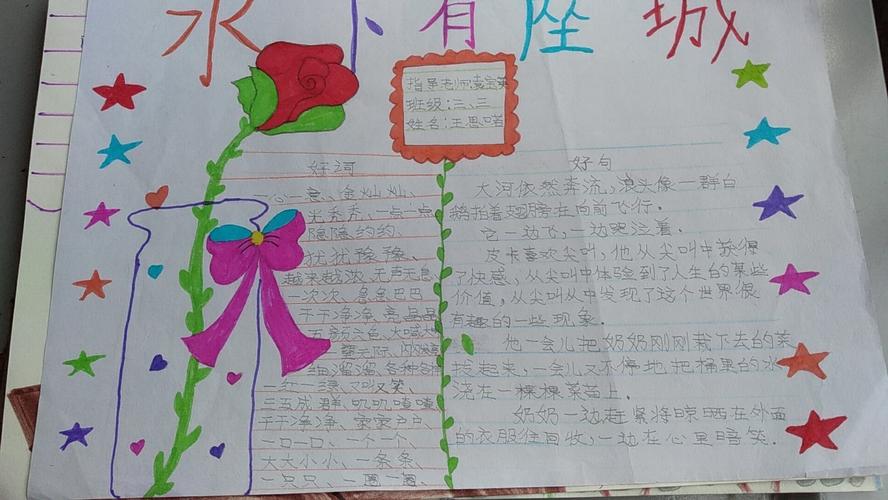 水下有座城
指导老师:袁宝英
班级:三、三
姓名:王思喏
好词
一心一意、金灿灿、
光秃秃、一点一点
隐隐约约、
犹犹豫豫、
越来越浓、无声无息、
一次次、急急巴巴
干干净净、亮晶晶
五颜六色、大喊大
细溜溜、各种各
三五成群、叽叽喳喳、
干干净净、家家户户、
一口一口、一个一个、
大大小小、一条条、
一只只、一圈一圈、
好句
大河依然奔流,浪头像一群白
鹅拍着翅膀在向前飞行。
它一边飞,一边哭泣着。
皮卡喜欢尖叫,他从尖叫中获得
了快感,从尖叫中体验到了人生的某些
价值,从尖叫从中发现了这个世界很
有趣的一些现象。
他一会儿把奶奶刚刚栽下去的菜
拔起来,一会儿又不停地把桶里的水
浇在一棵棵菜苗上。
奶奶一边赶紧将晾晒在外面
的衣服往回收,一边在心里暗笑。